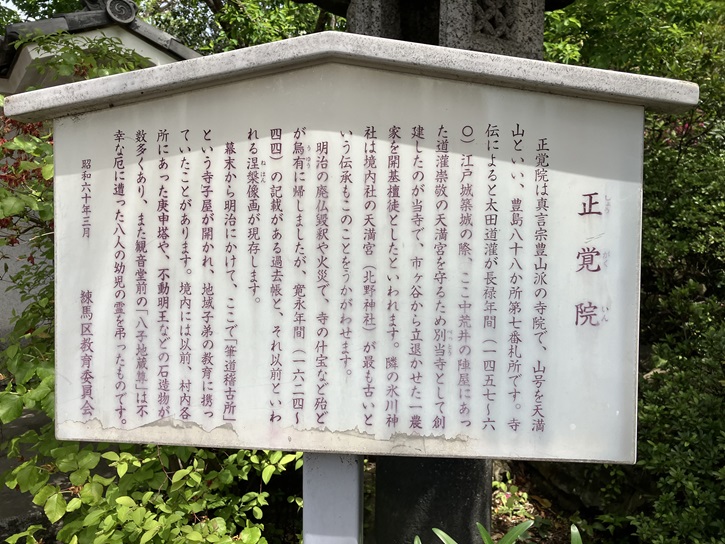 正覚院
しょうがくいん
正覚院は真言宗豊山派の寺院で、山号を天満
山といい、豊島八十八か所第七番札所です。寺
伝によると太田道灌が長禄年間（一四五七～六
〇）江戸城築城の際、ここ中荒井の陣屋にあっ
た道灌崇敬の天満宮を守るため別当寺として創
建したのが当寺で、市ヶ谷から立退かせた一農
家を開基檀徒としたといわれます。隣の氷川神
社は境内社の天満宮（北野神社）が最も古いと
いう伝承もこのことをうかがわせます。
明治の廃仏毀釈や火災で、寺の什宝など殆ど
が烏有に帰しましたが、寛永年間（一六二四～
四四）の記載がある過去帳と、それ以前といわ
れる涅槃像画が現存します。
幕末から明治にかけて、ここで「筆道稽古所」
という寺子屋が開かれ、地域子弟の教育に携っ
ていたことがあります。境内には以前、村内各
所にあった庚申塔や、不動明王などの石造物が
数多くあり、また観音堂前の「八子地蔵尊」は不
幸な厄に遭った八人の幼児の霊を弔ったものです。
昭和六十年三月
練馬区教育委員会